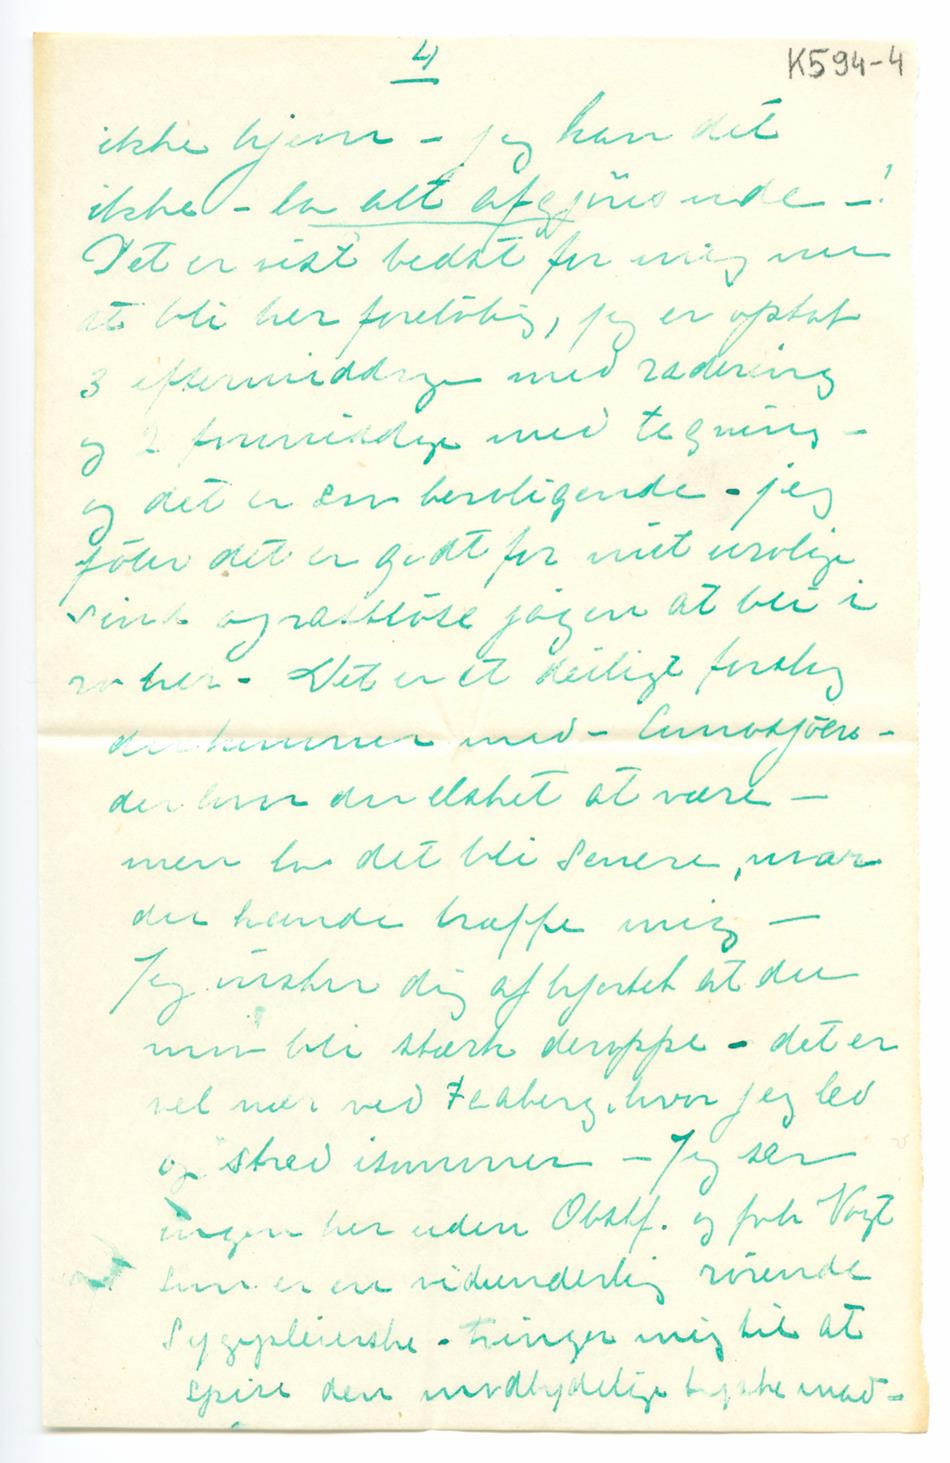 4
K594-4
ikke hjem – jeg kan det
ikke – la alt afgjöres ude –!
Det er vist bedst for mig nu
at bli her foreløbig, jeg er optat
3 eftermiddage med radering
og 2 formiddage med tegning –
og det er saa beroligende – jeg
föler det er godt for mit urolige
sind og rastløse jagen at bli i
ro her – Det er et deiligt forslag
du kommer med –
der hvor du elsket at være –
men la det bli senere, naar
du kunde træffe mig –
Jeg ønsker dig af hjertet at du
maa bli stærk deroppe – det er
vel nær ved Faaberg, hvor jeg led
og stred isommer – Jeg ser
ingen her uden Obstf. og frk Vogt
som er en vidunderlig rørende
Sygepleierske – tvinger mig til at
spise den modbydelige tyske mad –